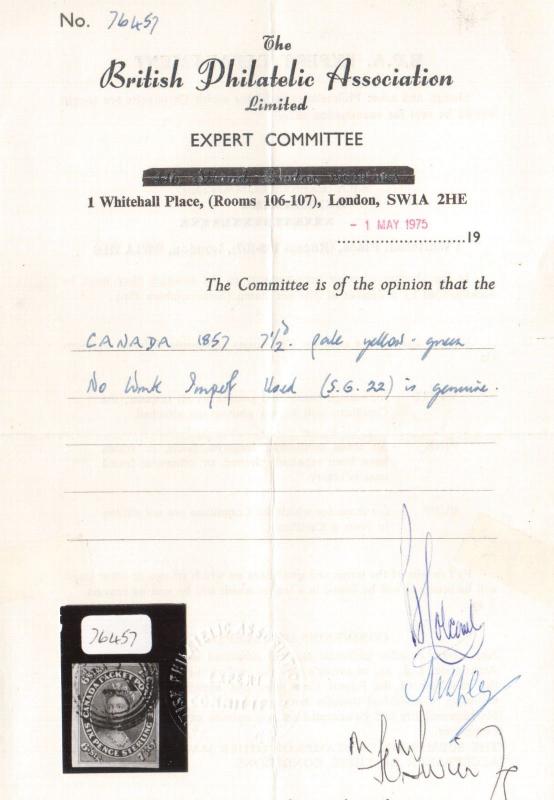 No. 76457
The
British Philatelic Association
Limited
EXPERT COMMITTEE
1 Whitehall Place, (Rooms 106-107), London, SW1A 2HE
- 1 MAY 1975
19
The Committee is of the opinion that the
CANADA 1857 7½d. pale yellow-green
No Wmk Imperf Used (S.G. 22) is genuine.
76457
CANADA PACKET POSTAGE
SIX PENCE STERLING